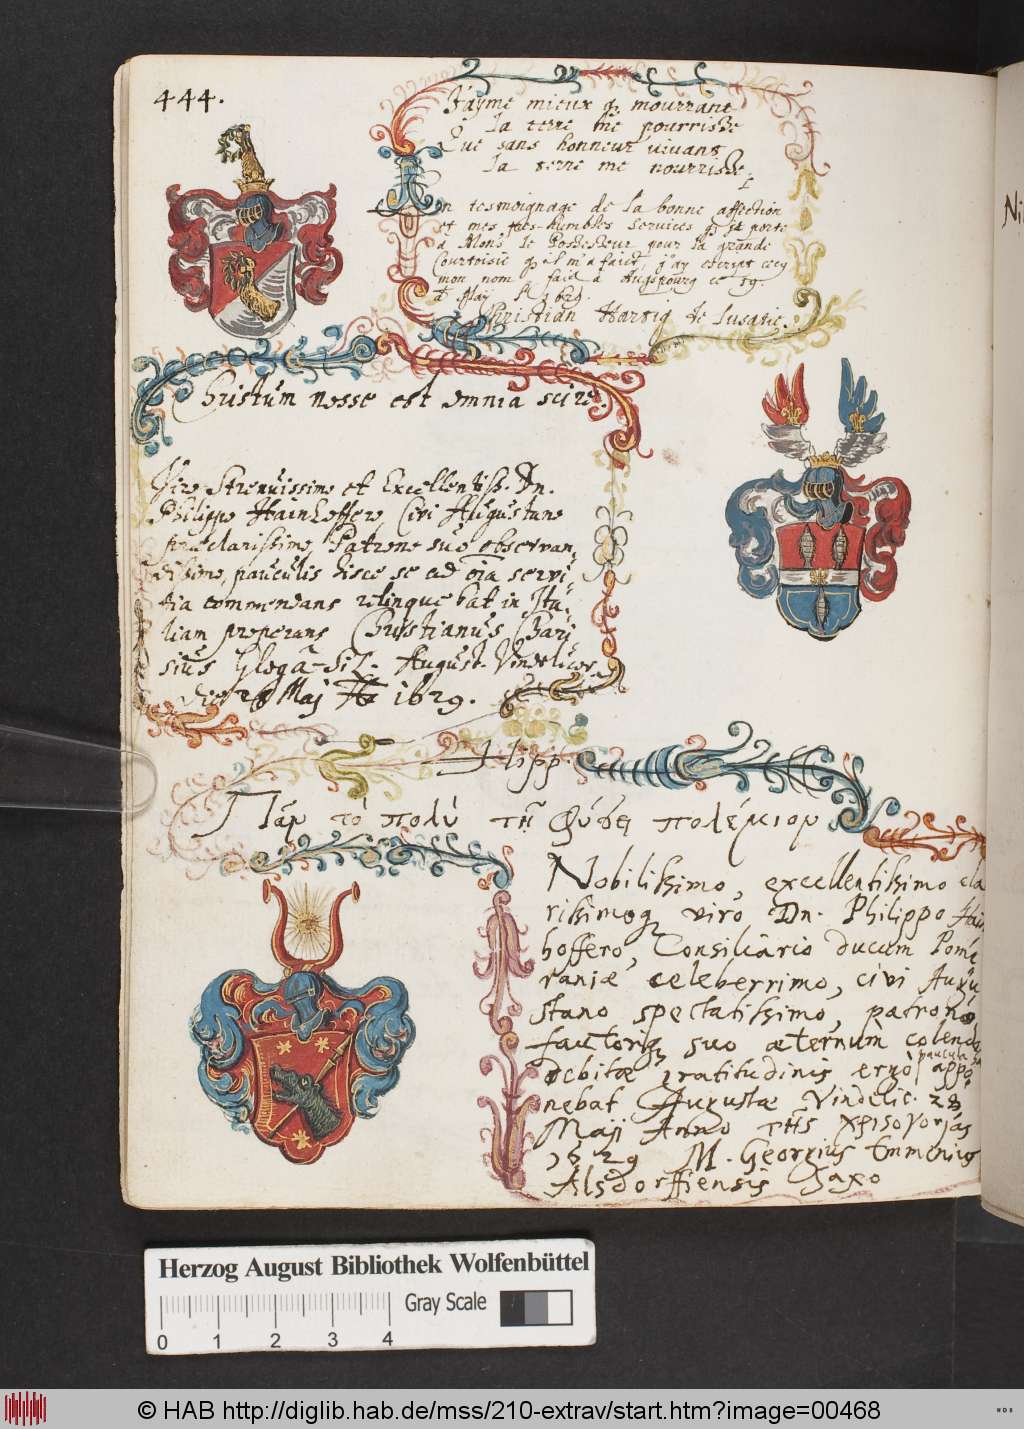 444.
J'ayme mieux q̃ mourrant
La terre me pourrisse
Que sans honneur vivant
La terre me nourrisse.
En tesmoignage de la bonne affection
et mes tres-humbles services q̃ je porte
a Mons. le Possesseur pour la grande
Courtoisie q̃ il m'a faict, j'ay escript cecy
mon nom faict a Augspourg ce 19.
May 1629.
Christian Hartig de Lusatie.
Christum nosse est omnia scire.
Viro Strenuissimo et Excellentiss. Dn.
Philippo Hainhoffero, Civi Augustano
præclarissimo, Patrono suo observan,
dissimo, pauculis hisce se ad oĩa servi,
tia commendans relinquebat in Ita,
liam properans Christianus
Gloga-Sil. August. Vindelicor.
die Maj A 1629.
Πᾶν τὸ πολὺ τῇ φύσει πολέμιον
Nobilissimo, excellentissimo cla
rissimoq viro, Dn. Philippo Hain
hoffero, Consiliario ducum Pome
raniæ celeberrimo, civi Augu
stano spectatissimo, patrono
fautoriq suo æternum colendo
debitæ gratitudinis ergò paucula appo
nebat Augustæ Vindelic. 28
Maji Anno τῆς χρισογονίας
1629 M. Georgius Emmenius
Alsdorffiensis Saxo
Herzog August Bibliothek Wolfenbüttel
Gray Scale
0 1 2 3 4
© HAB http://diglib.hab.de/mss/210-extrav/start.htm?image=00468